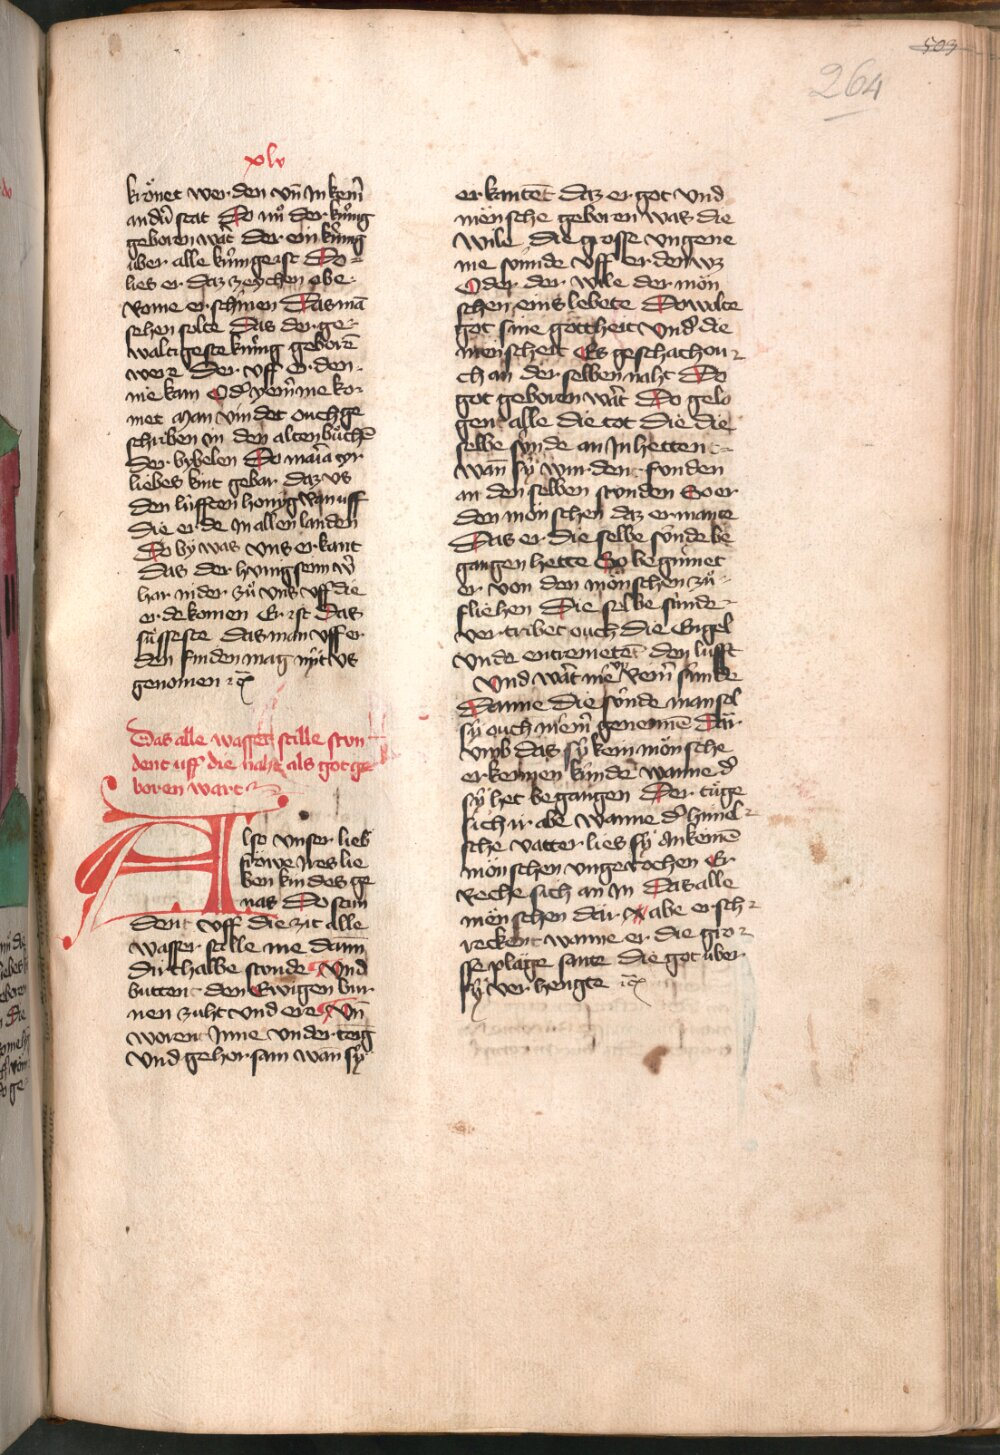 503
264
xlv
krönet werden vn̄ In kem̄
an dv̓ stat Do nu̓ der kúnig
geboren wart̓ der ein kúnig
über alle kúnige ist Do
lies er daz zeychen obe
Rome erschinen Das mā
sehen solte Das der ge
waltigeste kúnig geborē
were Der vff erden
nie kam Od̓ yem̄ me ko
met Man vindet ouch ge
schriben In den alten büchē
der bybelen Do maria ir
liebes kint gebar daz vs
den lüfften honig Ran uff
die erde In allen landen
Do by was vns erkant
Das der honig seim
har nider zu̓ vns vff die
erde komen Er ist Das
süsseste das man vff er
den finden mag nyt vs
genomen ⁊c̄
Das alle wasser stille stun
dent uff die naht als got ge
boren wart
Also vnser lieb
fröwe Ires lie
ben kindes ge
nas Do stun
dent vff die zit alle
wasser stille nie dann
dirthalbe stunde Vnd
buttent den Ewigen bur
nen zuht vnd ere Vn̄
worent Imme vndertenig
vnd gehorsam wan̄ sÿ
erkantet̄ daz er got vnd
mönsche geboren was die
wile die grosse vngene
me súnde vff erden wz
Oder der wile der mön
schen eins lebete Do wolte
got sine gottheit vnd̓ die
menscheit Es geschach ou
ch an der selben naht Do
got geboren wart̓ Do gelo
gent alle die tot die die
selbe sýnde an In hetten
wan̄ sÿ wurdent funden
an den selben stunden So er
den mönschen daz ermante
Das er die selbe súnde be
gangen hette So begúnnet
er von den mönschen zu̓
fliehen Die selbe súnde
vertribet ouch die Engel
vnde entremetet̄ den lufft
Vnd wart̓ nie kein̄ súnde
Danne die súnde man sol
sÿ ouch niem̄ genennē Dar
vmb das sÿ kein mönsche
erkennen kúnde wanne d̓
sÿ het begangen Der tüge
sich ir abe wanne d̓ himel
sche vatter lies sÿ An keinē
mönschen vngerochen Er
Reche sich an In Das alle
mönschen dar abe ersch
reckent wanne er die gro
sse plage sante die got über
sÿ verhengte ⁊c̄